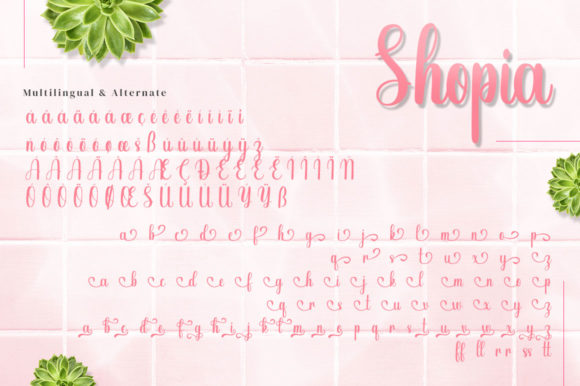 Shopia
Multilingual & Alternate
à á â ã ä å æ ç è é ê ë ì í î ï
ñ ò ó ô õ ö ø œ š ß ù ú û ü ý ÿ ž
À Á Â Ã Ä Å Æ Ç Ð È É Ê Ë Ì Í Î Ï Ñ
Ò Ó Ô Õ Ö Ø Œ Š Ù Ú Û Ü Ý Ÿ ß
a b c d e f h g i j k l m n o p
q r s t u x y z
ca cb cc cd ce cf cg ch ci cj ck cl cm cn co cp
cq cr cs ct cu cv cw cx cy cz
a b c d e f g h i j k l m n o p q r s t u v w x y z
ff ll rr ss tt